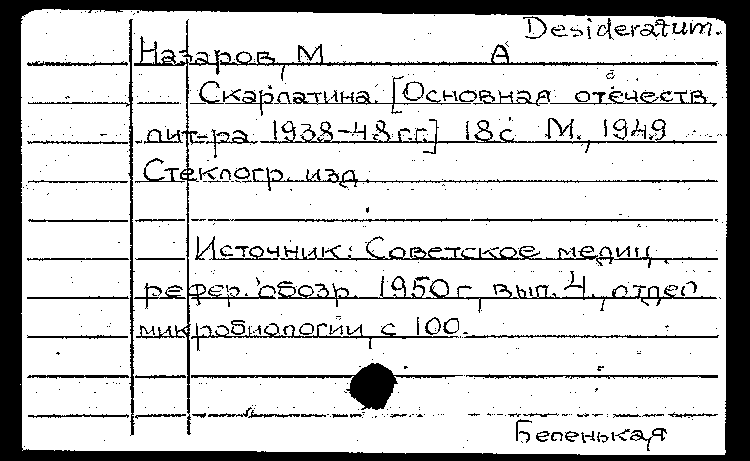 Desideratum.
Назаров, М. А
Скарлатина. [Основная отечеств.
лит-ра 1938-48 г.г.] 18с М., 1949
Стеклогр. изд.
Источник: Советское медиц.
рефер. обозр. 1950 г, вып. 4., отдел
микробиологии, с 100.
Беленькая